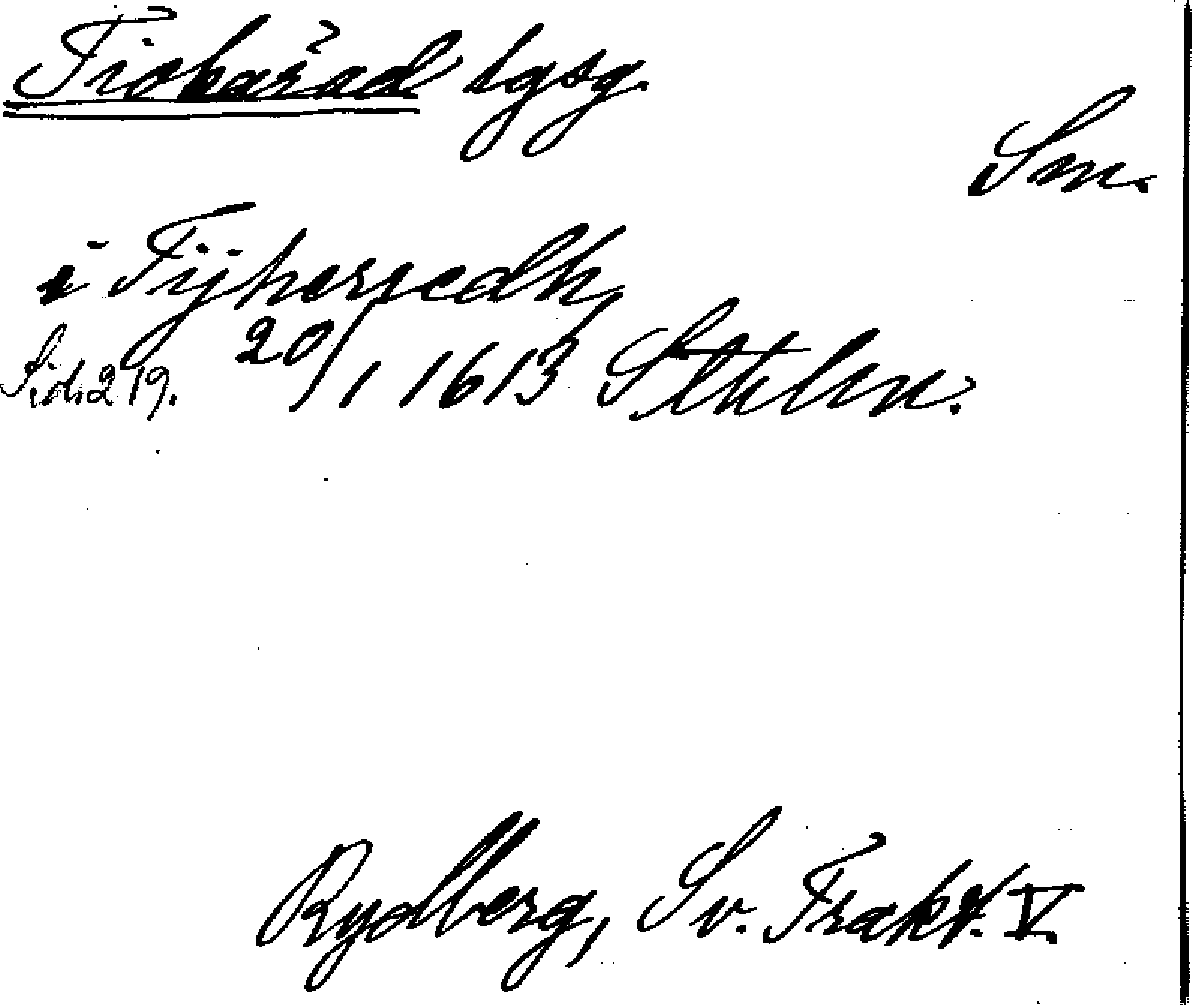 Tiohärad bgsg.
Sm.
i Tijherredh
Sid. 219. 20/1 1613 Sthlm.
Rydberg, Sv. Trakt. V.